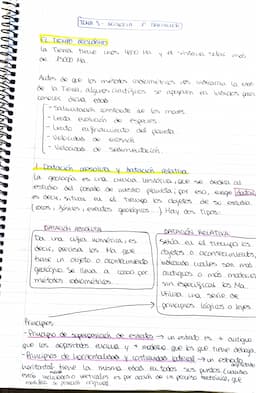 TEMA 5 - GEOLOGIA 1º BACHILLER
EL TIEMPO GEOLÓGICO
la Tierra tiene unos 4500 Ma y el
Antes de que los métodos radiométricos
de la Tierra, algunos científicos se apoyaron en
conocer dicha edad
- Salinidad de los mares.
- Lenta evolución de especies.
- Lento enfriamiento del planeta
- Velocidad de erosión
- Velocidad de sedimentación.
1. Datación absoluta y datación relativa
La geología es una ciencia histórica, que se dedica al
estudio del pasado de nuestro planeta, por eso, exige datar
es decir, situar en el tiempo los objetos de su estudio
(rocas, fósiles, eventos geológicos...) Hay dos tipos:
DATACIÓN ABSOLUTA
Da una cifra numérica, es
decir, precisa los Ma que
tiene un objeto o acontecimiento
geológico. Se lleva a cabo por
métodos radiométricos.
DATACIÓN RELATIVA
Sitúa en el tiempo los
objetos o acontecimientos,
indicando cuáles son más
antiguos o más modernos
sin especificar los Ma.
Utiliza una serie de
principios lógicos o leyes.
Principios
- Principio de superposición de estratos → un estrato es + antiguo
que los depositados encima y + moderno que los que tiene debajo.
- Principios de horizontalidad y continuidad lateral → un estrato
horizontal tiene la misma edad en todos sus puntos